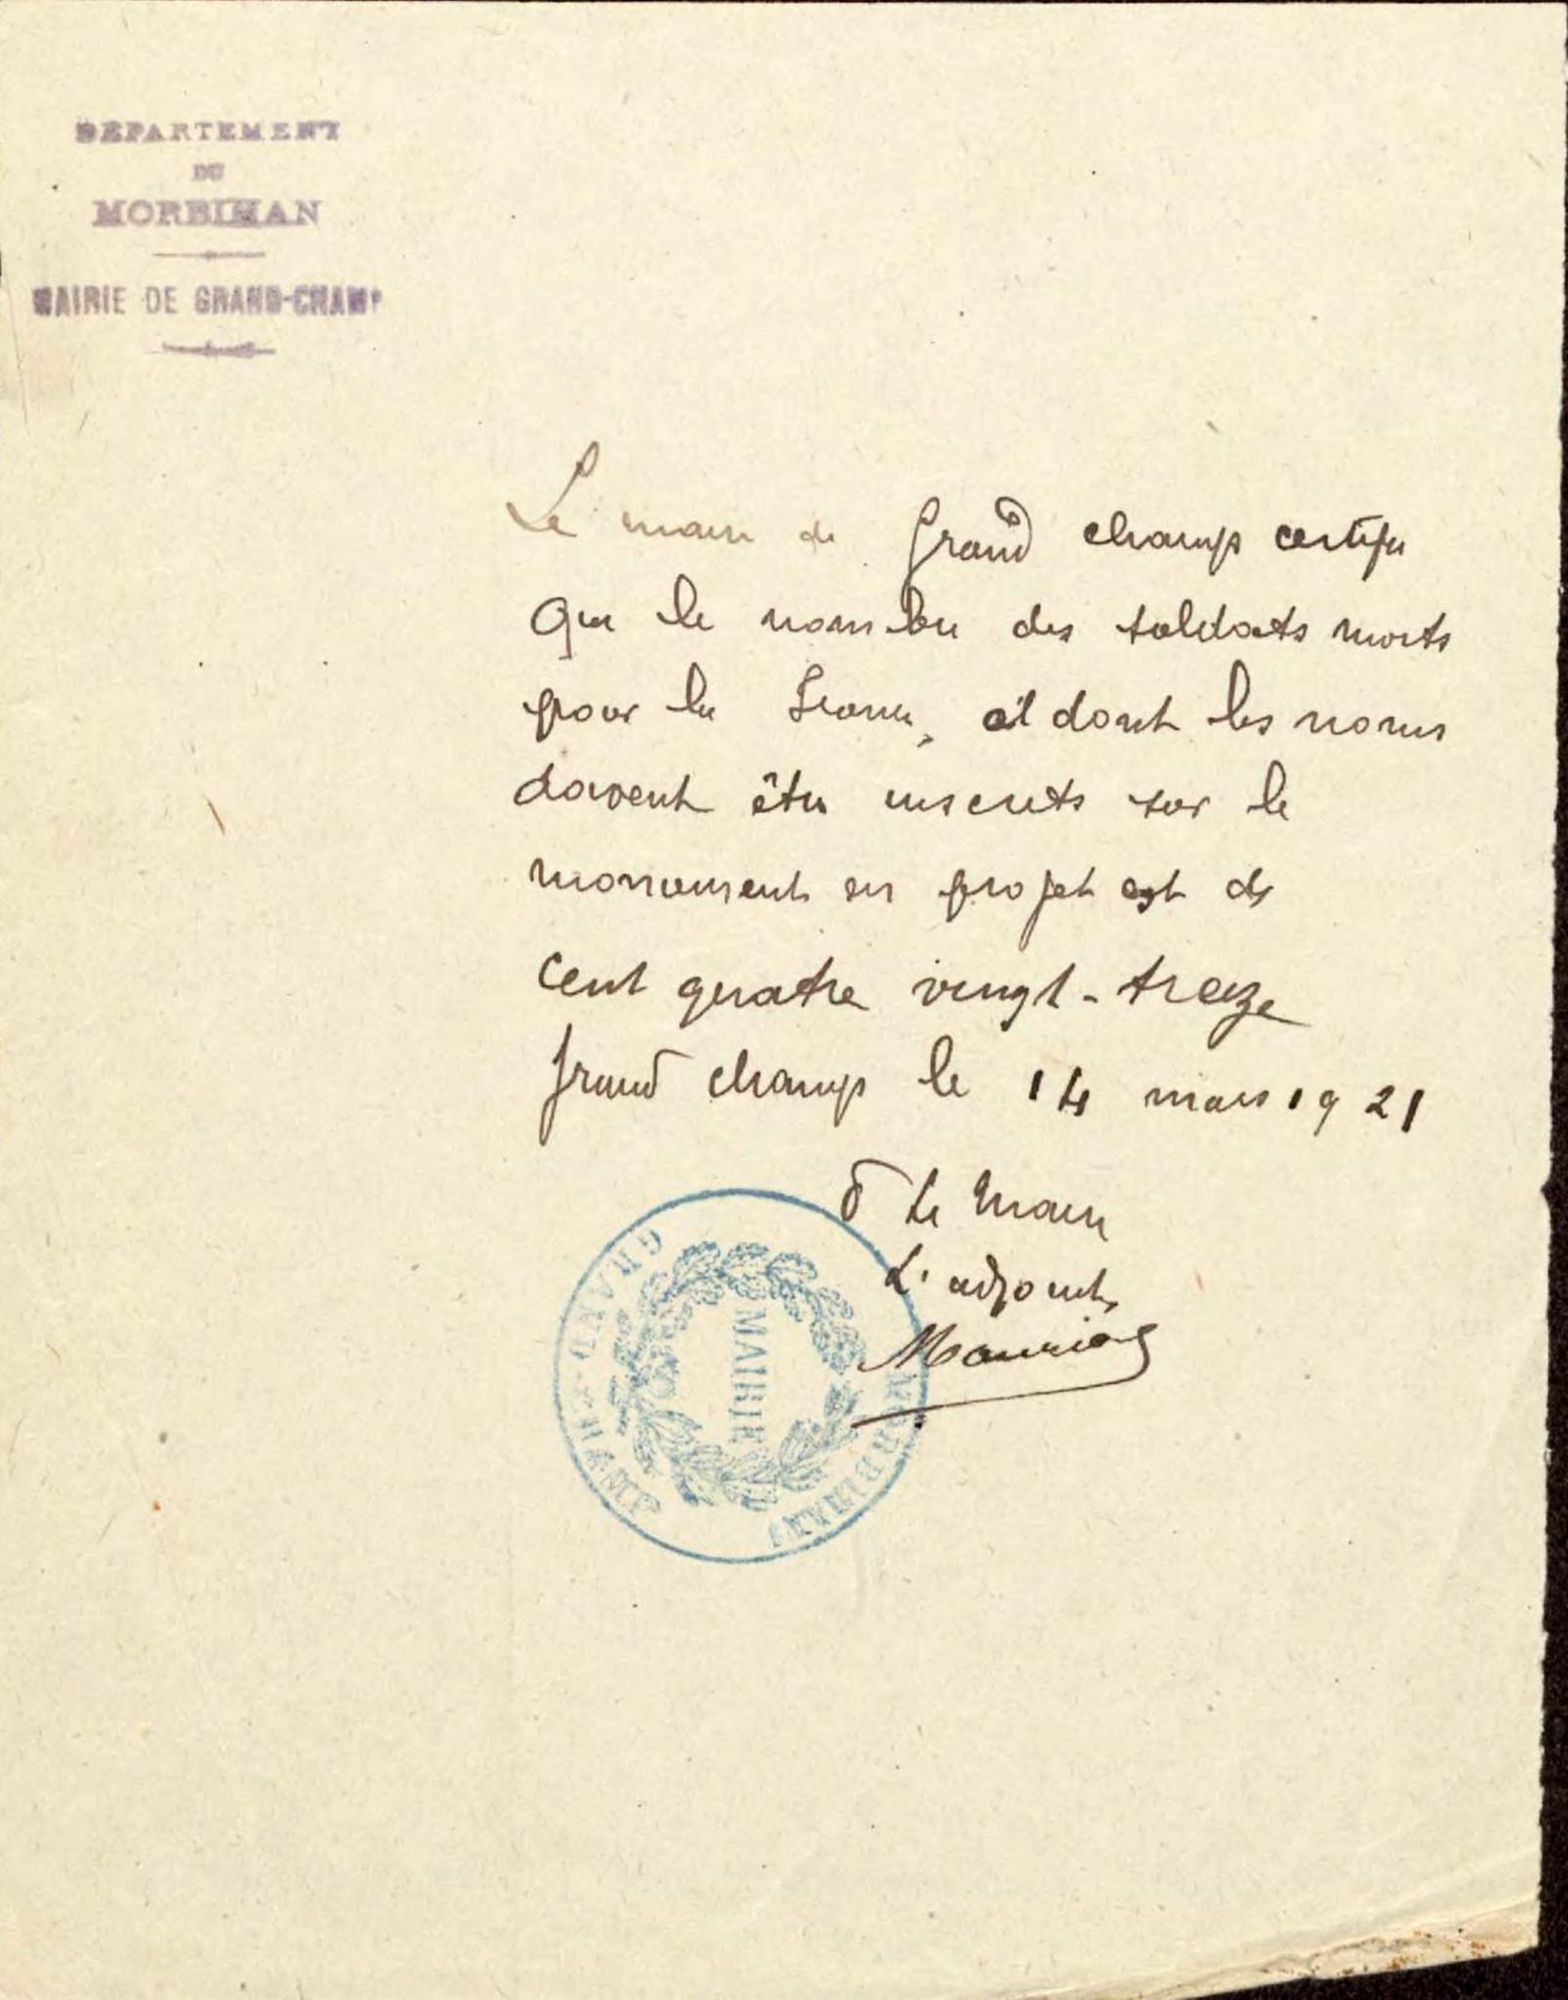 DÉPARTEMENT
DU
MORBIHAN
MAIRIE DE GRAND-CHAMP
Le maire de Grand champ certifie
que le nombre des soldats morts
pour la France, et dont les noms
doivent être inscrits sur le
monument en projet est de
cent quatre vingt-treize
Grand champ le 14 mars 1921
Le Maire
L'adjoint
GRAND-CHAMP
MAIRIE
(MORBIHAN)